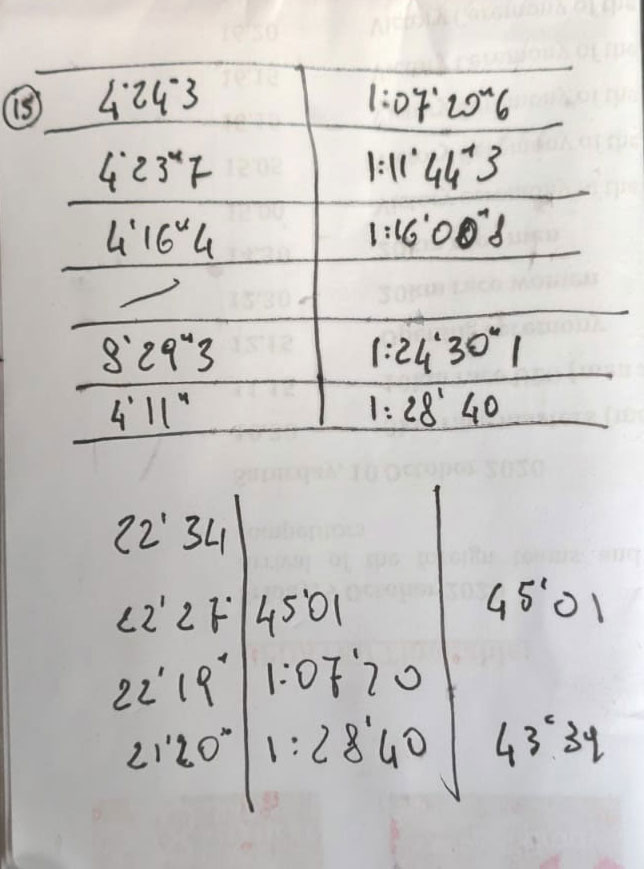 15 4'24"3 1:07'20"6
4'23"7 1:11'44"3
4'16"4 1:16'00"8
8'29"3 1:24'30"1
4'11" 1:28'40
22'34
22'27" 45'01 45'01
22'19" 1:07'20
21'20" 1:28'40 43'39